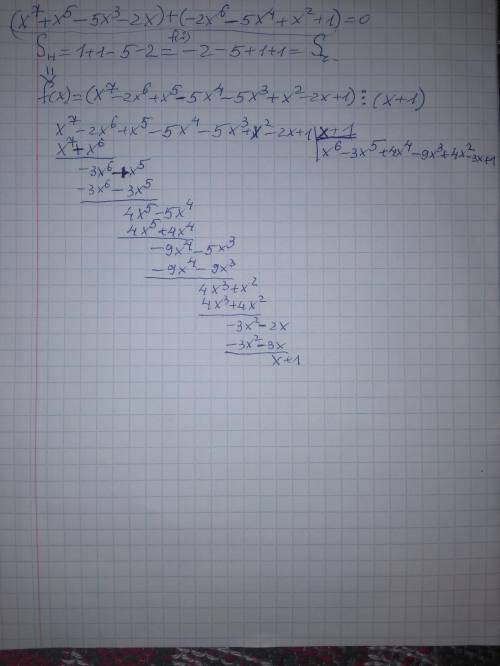 (x⁷+x⁵-5x³-2x)+(-2x⁶-5x⁴+x²+1)=0
Sн=1+1-5-2=-2-5+1+1=Sч.
⇓
f(x)=(x⁷-2x⁶+x⁵-5x⁴-5x³+x²-2x+1)⋮(x+1)
x⁷-2x⁶+x⁵-5x⁴-5x³+x²-2x+1 | x+1
x⁷+x⁶ x⁶-3x⁵+4x⁴-9x³+4x²-3x+1
-3x⁶+x⁵
-3x⁶-3x⁵
4x⁵-5x⁴
4x⁵+4x⁴
-9x⁴-5x³
-9x⁴-9x³
4x³+x²
4x³+4x²
-3x²-2x
-3x²-3x
x+1